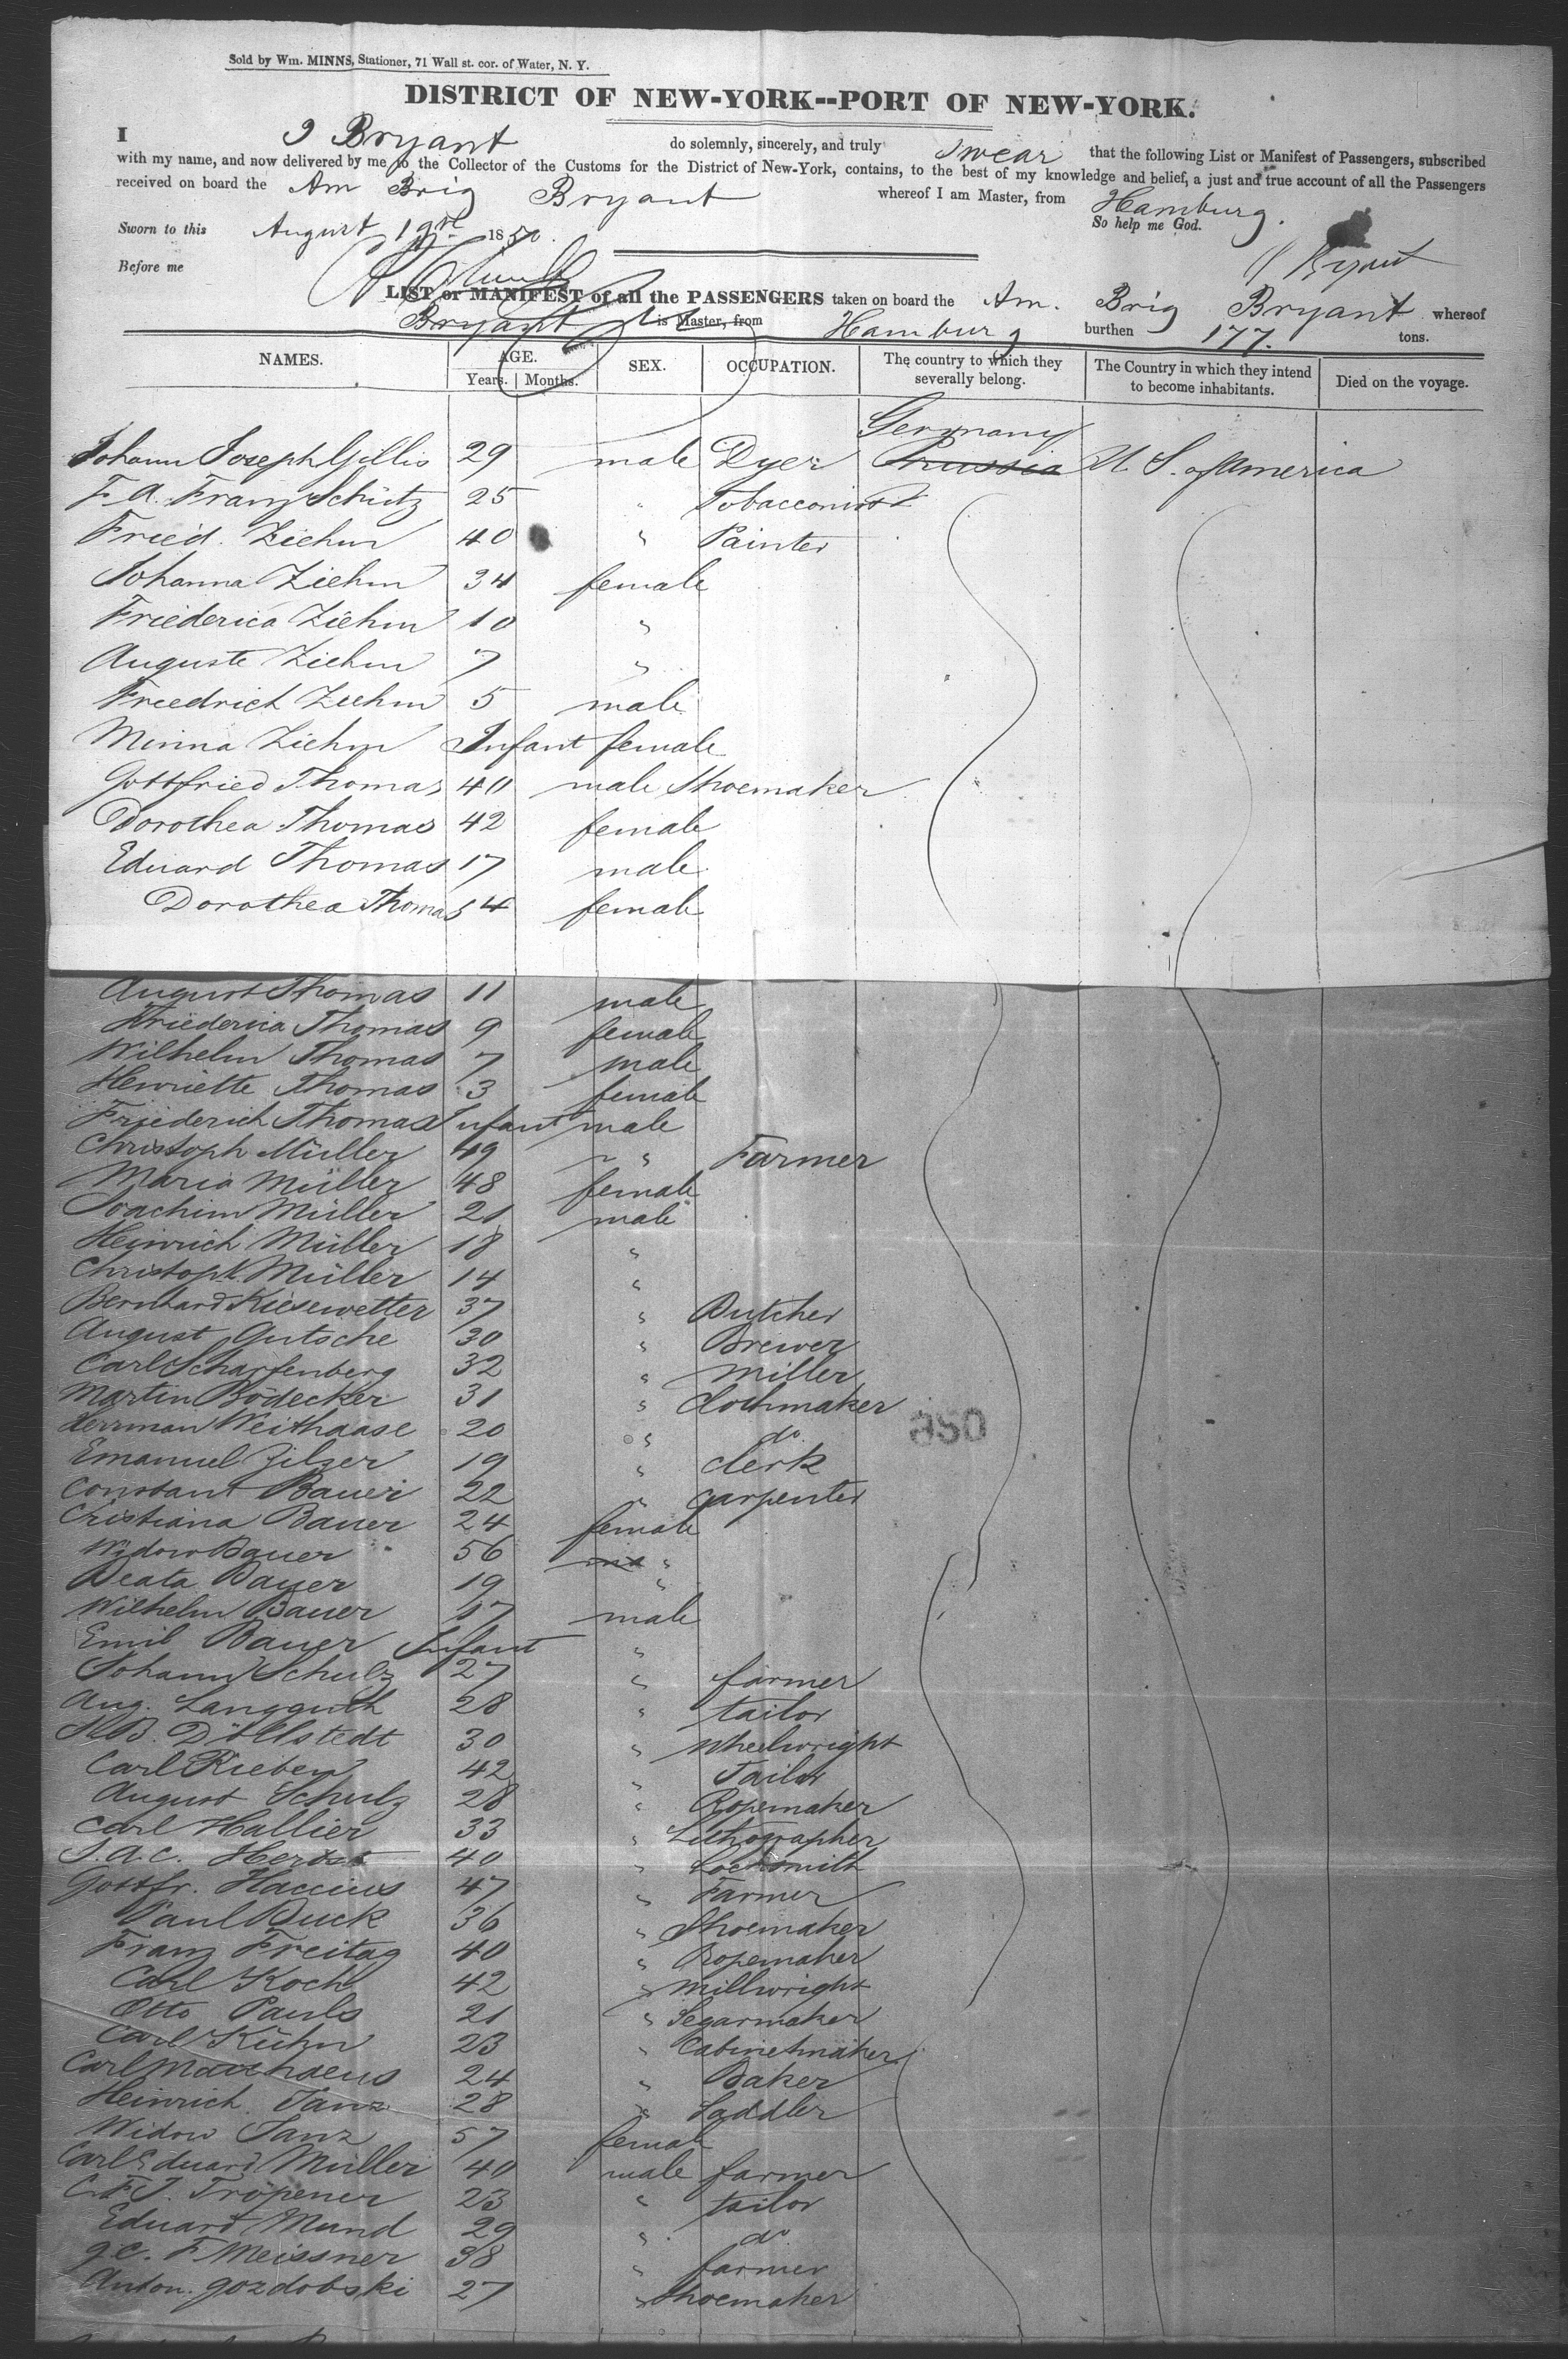 Sold by Wm. MINNS, Stationer, 71 Wall st. cor. of Water, N. Y.
DISTRICT OF NEW-YORK--PORT OF NEW-YORK.
I J Bryant do solemnly, sincerely, and truly swear that the following List or Manifest of Passengers, subscribed
with my name, and now delivered by me to the Collector of the Customs for the District of New-York, contains, to the best of my knowledge and belief, a just and true account of all the Passengers
received on board the Am Brig Bryant whereof I am Master, from Hamburg.
Sworn to this August 19th 1850. So help me God.
Before me J Bryant
LIST or MANIFEST of all the PASSENGERS taken on board the Am. Brig Bryant whereof
Bryant is Master, from Hamburg burthen 177. tons.
NAMES. AGE. Years. Months. SEX. OCCUPATION. The country to which they severally belong. The Country in which they intend to become inhabitants. Died on the voyage.
Germany
Johann Joseph Gillis 29 male Dyer Prussia U. S. of America
F. A. Franz Schütz 25 " Tobacconist
Fried. Ziehm 40 " Painter
Johanna Ziehm 34 female
Friederica Ziehm 10 "
Auguste Ziehm 7 "
Friedrich Ziehm 5 male
Minna Ziehm Infant female
Gottfried Thomas 40 male Shoemaker
Dorothea Thomas 42 female
Eduard Thomas 17 male
Dorothea Thomas 14 female
August Thomas 11 male
Friederica Thomas 9 female
Wilhelm Thomas 7 male
Henriette Thomas 3 female
Friederich Thomas Infant male
Christoph Müller 49 " Farmer
Maria Müller 48 female
Joachim Müller 21 male
Heinrich Müller 18 "
Christoph Müller 14 "
Bernhard Kiesewetter 37 " Butcher
August Gutsche 30 " Brewer
Carl Scharfenberg 32 " Miller
Martin Bödecker 31 " Clothmaker
Herrman Weithaase 20 " do.
Emanuel Zilzer 19 " clerk
Constant Bauer 22 " carpenter
Cristiana Bauer 24 female
Widow Bauer 56 ma "
Beata Bauer 19 "
Wilhelm Bauer 17 male
Emil Bauer Infant "
Johann Schulz 27 " farmer
Aug. Langguth 28 " tailor
Döllstedt 30 " wheelwright
Carl Rieben 42 " Tailor
August Schulz 28 " Ropemaker
Carl Hallier 33 " Lithographer
J. A. C. Herbst 40 " Locksmith
Gottfr. Haccius 47 " Farmer
Paul Buck 36 " Shoemaker
Franz Freitag 40 " Ropemaker
Carl Koch 42 " Millwright
Otto Pauls 21 " Segarmaker
Carl Kühn 23 " Cabinetmaker
Carl Matthaeus 24 " Baker
Heinrich Tanz 28 " Saddler
Widow Tanz 57 female
Carl Eduard Müller 40 male farmer
C. F. J. Tröpener 23 " tailor
Eduard Mund 29 " do
G. C. F. Meissner 38 " farmer
Anton. Gozdobski 27 " Shoemaker